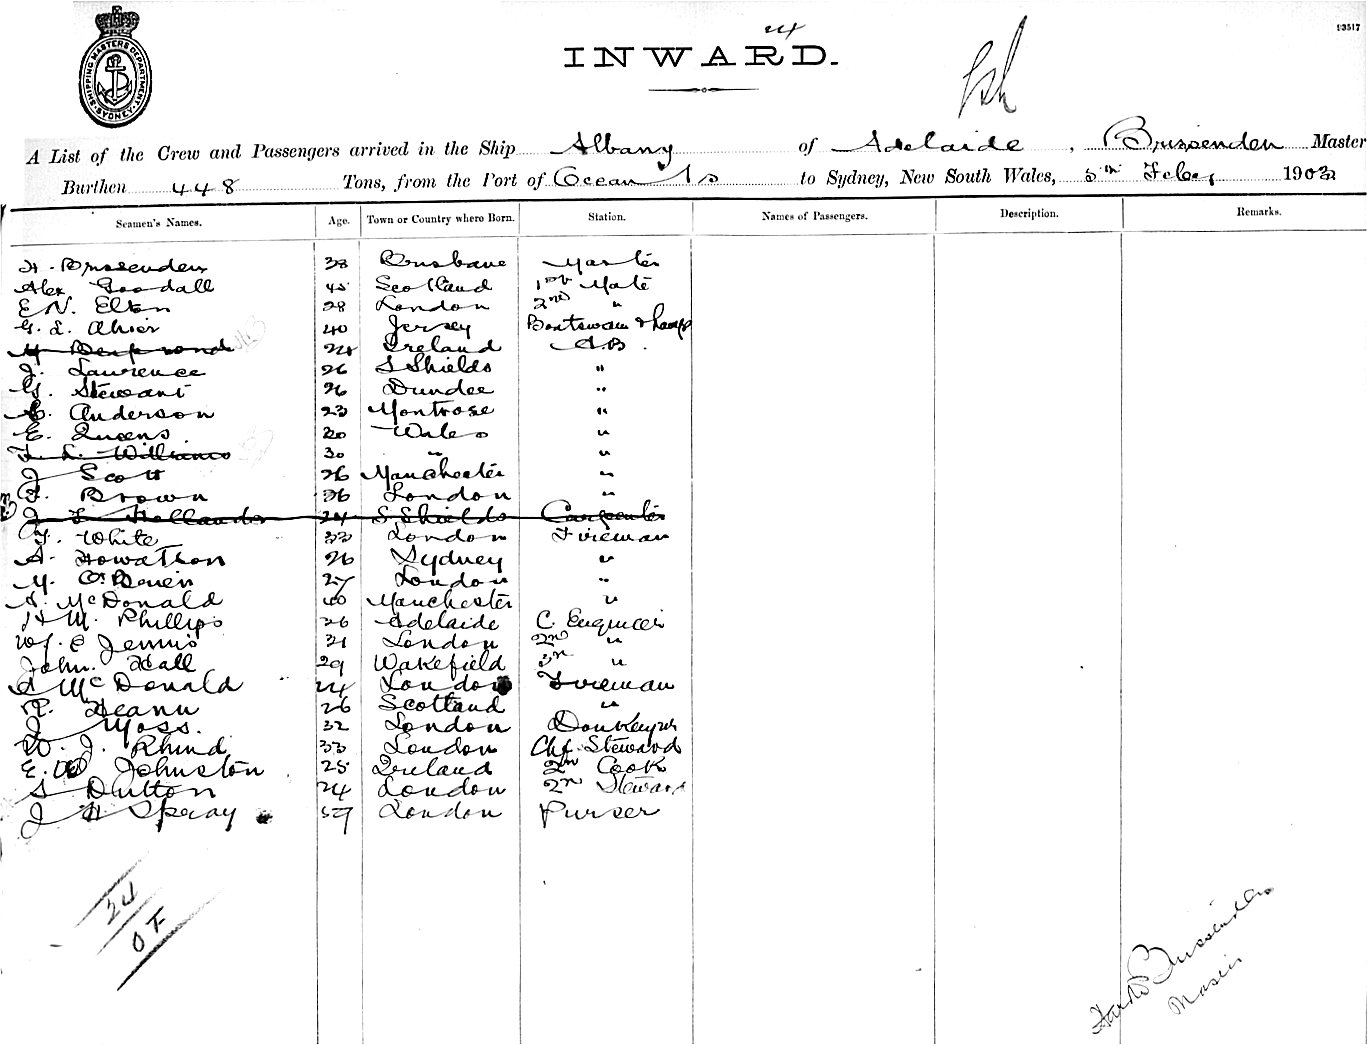 24
13517
INWARD.
SHIPPING MASTERS DEPARTMENT SYDNEY
A List of the Crew and Passengers arrived in the Ship Albany of Adelaide, Brussenden Master
Burthen 448 Tons, from the Port of Ocean Is to Sydney, New South Wales, 5th Feby 1903
Seamen's Names. Age. Town or Country where Born. Station. Names of Passengers. Description. Remarks.
H. Brussenden 38 Brisbane Master
Alex Goodall 45 Scotland 1st Mate
E N. Elton 28 London 2nd "
G. L. Ahier 40 Jersey Boatswain & Lamps
24 Ireland AB.
J. Lawrence 26 S Shields "
G. Stewart 26 Dundee "
Anderson 23 Montrose "
E. Queens. Wales "
Williams 30 " "
J Scott 26 Manchester "
F. Brown 26 London "
J Hollander 24 S Shields Carpenter
F. White 33 London Fireman
A. Howatson 26 Sydney "
M. O'Brien 27 London "
A. McDonald 40 Manchester "
H M. Phillips 26 Adelaide C. Engineer
W. E Jennis 31 London 2nd "
John. Hall 29 Wakefield 3rd "
A McDonald 24 London Fireman
R. Heann 26 Scotland "
J Moss. 32 London Donkeyman
W. J. Rhind 33 London Chf. Steward
E. W Johnston 25 Ireland 2nd Cook
S Dutton 24 London 2nd Steward
J H Spray 59 London Purser
24
OF
Brussenden
Master